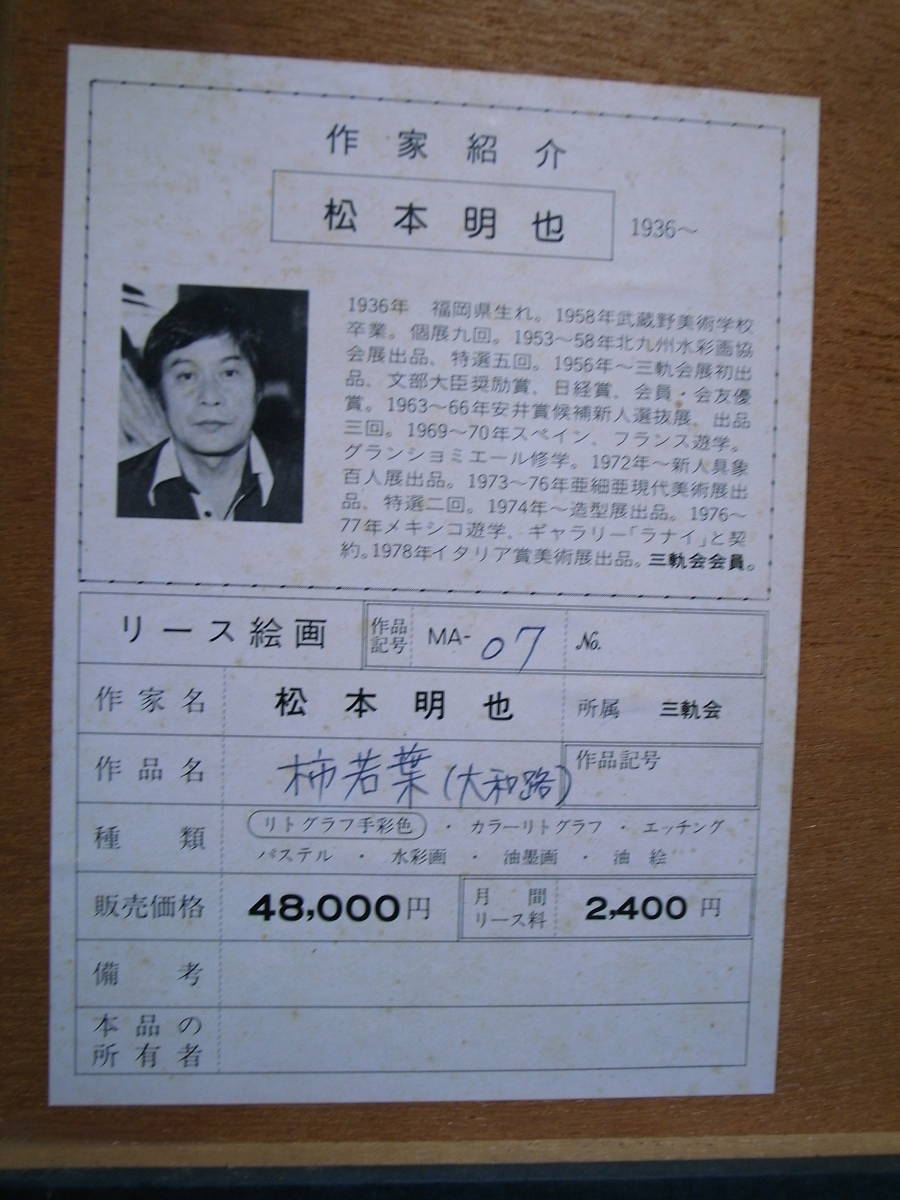 作家紹介
松本明也 1936〜
1936年　福岡県生れ。1958年武蔵野美術学校
卒業。個展九回。1953〜58年北九州水彩画協
会展出品、特選五回。1956年〜三軌会展初出
品、文部大臣奨励賞、日経賞、会員・会友優
賞。1963〜66年安井賞候補新人選抜展、出品
三回。1969〜70年スペイン、フランス遊学。
グランショミエール修学。1972年〜新人具象
百人展出品。1973〜76年亜細亜現代美術展出
品、特選二回。1974年〜造型展出品。1976〜
77年メキシコ遊学、ギャラリー「ラナイ」と契
約。1978年イタリア賞美術展出品。三軌会会員。
リース絵画 作品記号 MA-07 №
作家名 松本明也 所属 三軌会
作品名 柿若葉(大和路) 作品記号
種類 リトグラフ手彩色・カラーリトグラフ・エッチング
パステル・水彩画・油墨画・油絵
販売価格 48,000円 月間リース料 2,400円
備考
本品の
所有者